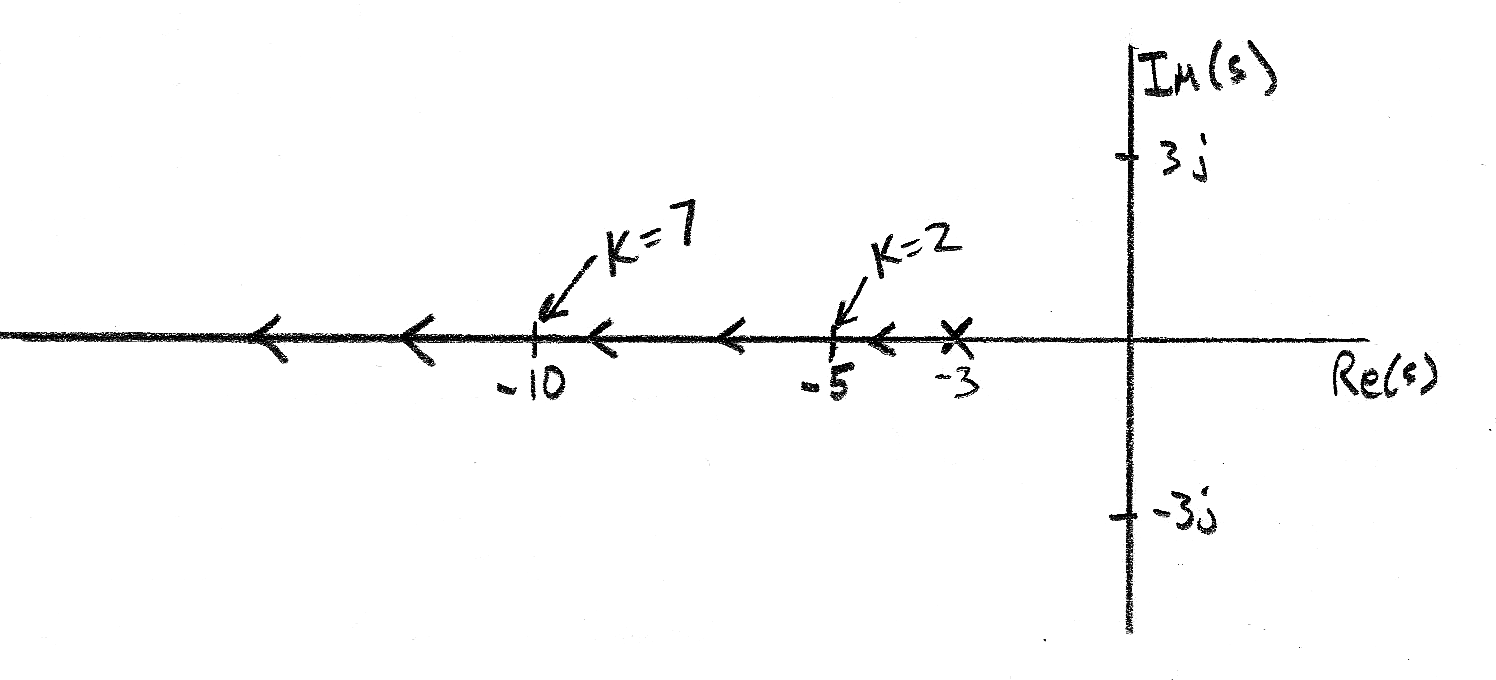 Im(s)
3j
K=7
K=2
-10
-5
-3
Re(s)
-3j